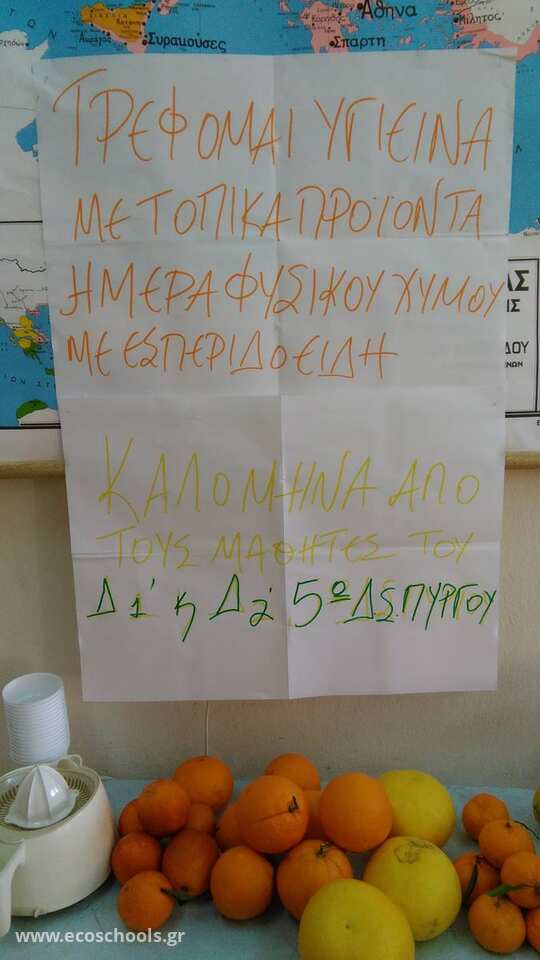 Αθήνα
Συρακούσες
Σπάρτη
Μίλητος
ΤΡΕΦΟΜΑΙ ΥΓΙΕΙΝΑ
ΜΕ ΤΟΠΙΚΑ ΠΡΟΪΟΝΤΑ
ΗΜΕΡΑ ΦΥΣΙΚΟΥ ΧΥΜΟΥ
ΜΕ ΕΣΠΕΡΙΔΟΕΙΔΗ
ΚΑΛΟ ΜΗΝΑ ΑΠΟ
ΤΟΥΣ ΜΑΘΗΤΕΣ ΤΟΥ
Δ1' κ Δ2' 5ο Δ.Σ. ΠΥΡΓΟΥ
www.ecoschools.gr